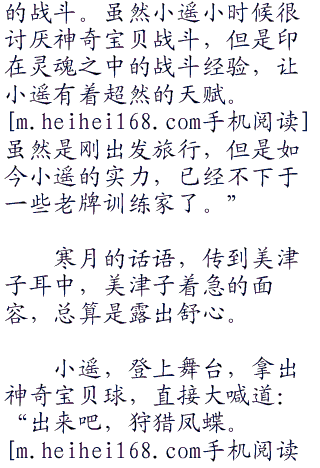 的战斗。虽然小遥小时候很
讨厌神奇宝贝战斗，但是印
在灵魂之中的战斗经验，让
小遥有着超然的天赋。
[m.heihei168.com手机阅读]
虽然是刚出发旅行，但是如
今小遥的实力，已经不下于
一些老牌训练家了。”
寒月的话语，传到美津
子耳中，美津子着急的面
容，总算是露出舒心。
小遥，登上舞台，拿出
神奇宝贝球，直接大喊道：
“出来吧，狩猎凤蝶。
[m.heihei168.com手机阅读